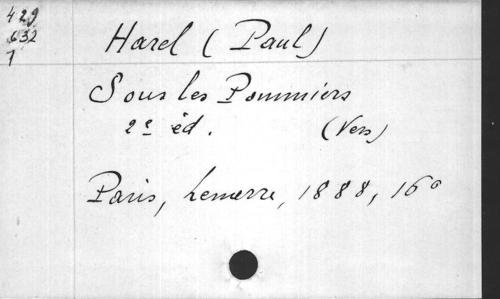 429
632
1
Harel (Paul)
Sous les Pommiers
2e éd. (Vers)
Paris, Lemerre, 1888, 16°